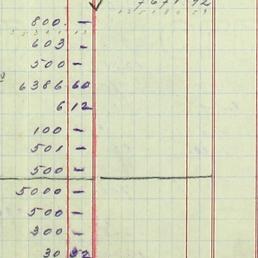 7671.92
800. -
603 -
500 -
6386 60
6 12
100 -
501 -
500 -
5000 -
500 -
300 -
30 92